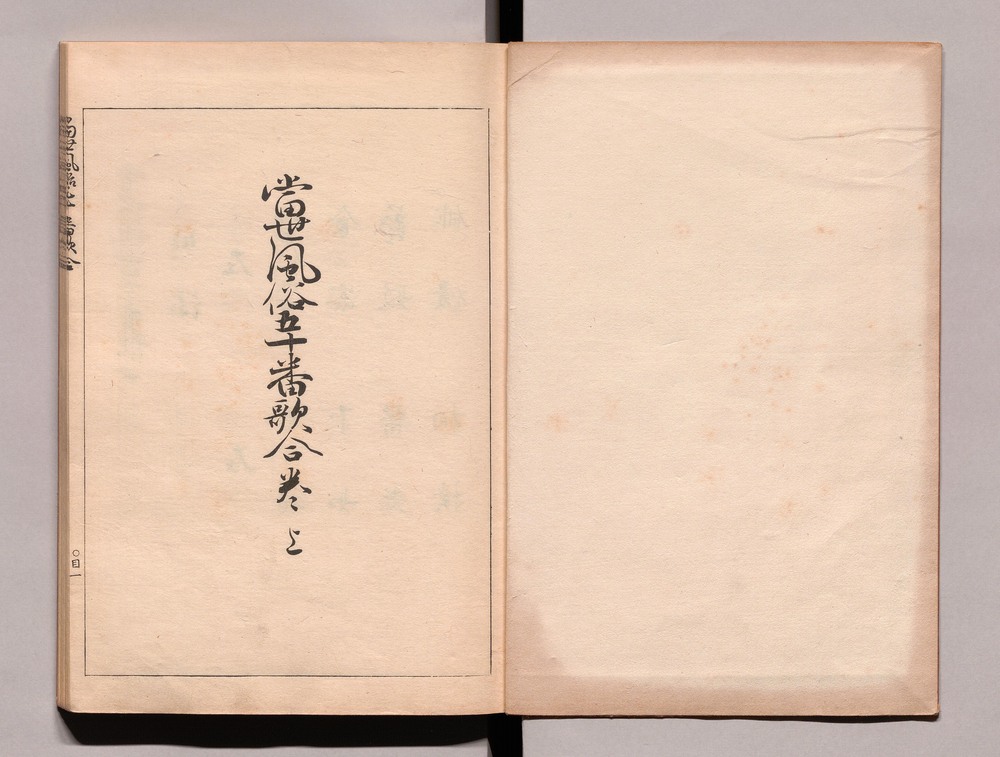 當世風俗五十番歌合卷上
當世風俗五十番歌合
〇目一